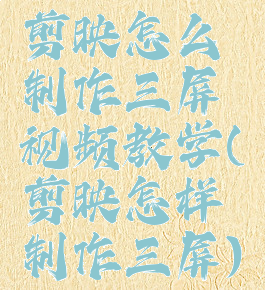 剪映怎么
制作三屏
视频教学(
剪映怎样
制作三屏)